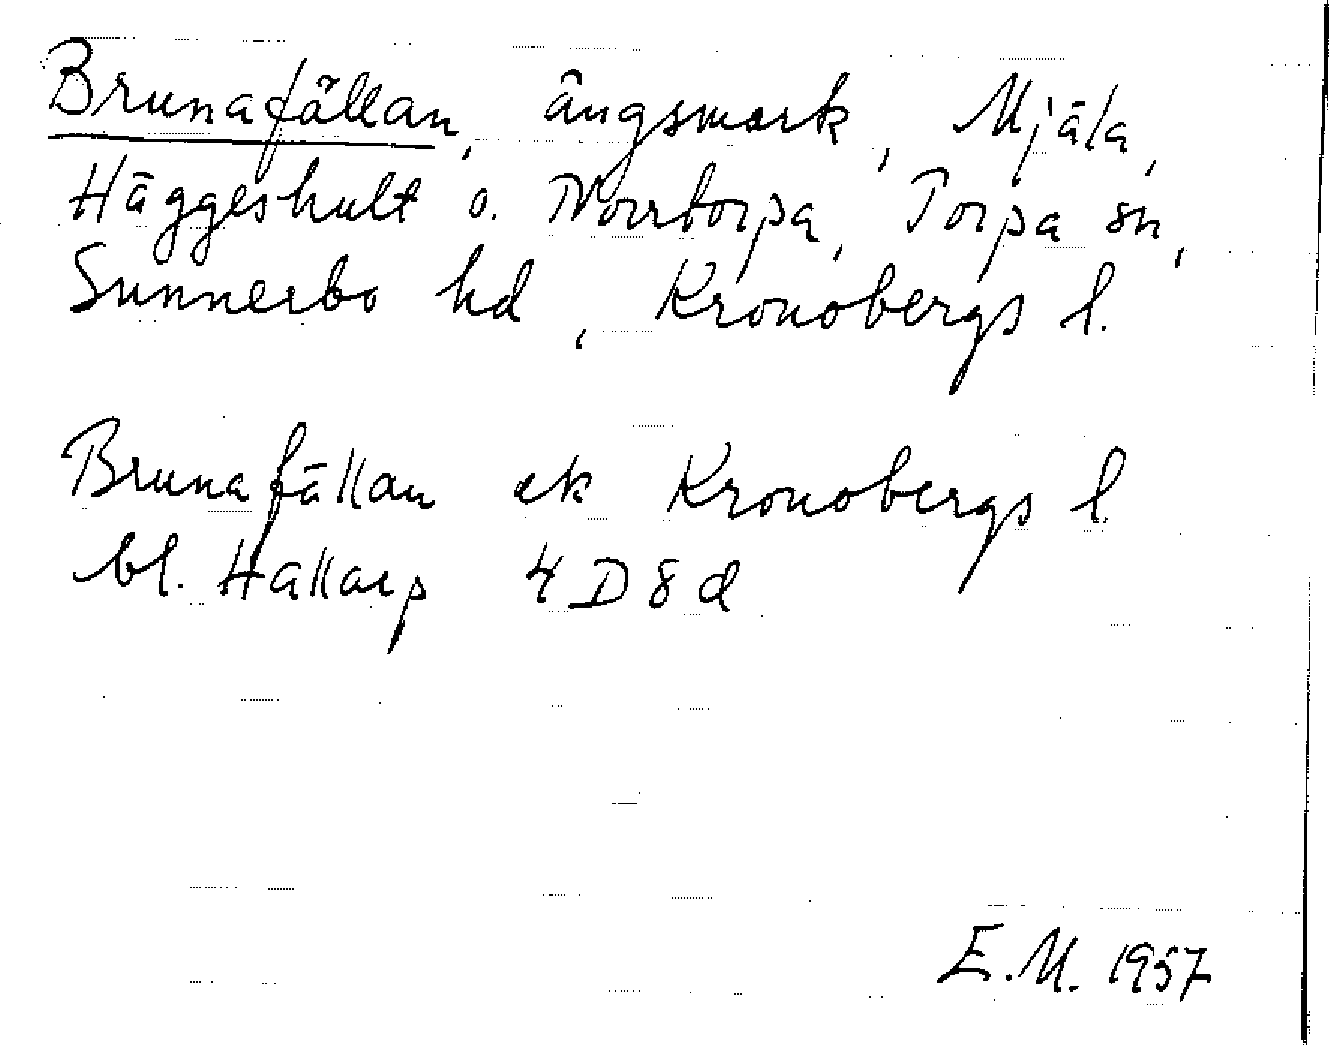 Brunafällan, ängsmark, Mjäla,
Häggeshult o. Norrtorpa, Torpa sn,
Sunnerbo hd, Kronobergs l.
Brunafällan ek Kronobergs l
bl. Hallarp 4D8d
E.M. 1957